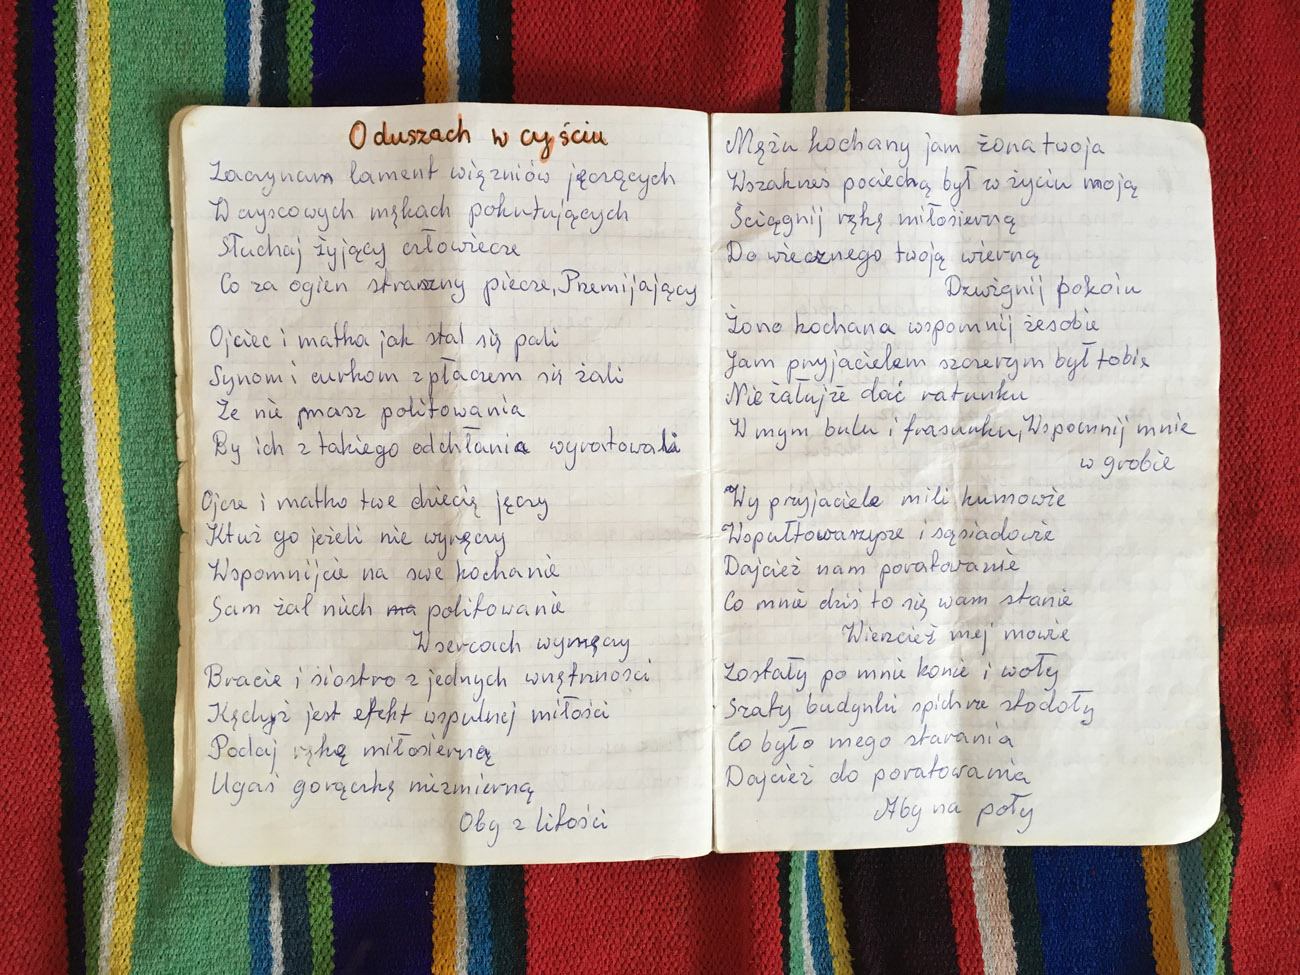 O duszach w cyśćiu
Zaczynam lament więzniów jęczących
W czyscowych mękach pokutujących
Słuchaj żyjący człowiecze
Co za ogien straszny piecze, Przemijający
Ojciec i matka jak stal się pali
Synom i curkom z płaczem się żali
Że nie masz politowania
By ich z takiego odchłania wyratowali
Ojcze i matko twe dziecię jęczy
Ktuż go jeżeli nie wyręczy
Wspomnijcie na swe kochanie
Sam żal niich ma politowanie
W sercach wymęczy
Bracie i siostro z jednych wnętrzności
Kędyż jest efekt wspulnej miłości
Podaj rękę miłosierną
Ugaś gorączkę niezmierną
Oby z litości
Mężu kochany jam żona twoja
Wszakześ pociechą był w życiu moją
Ściągnij rękę miłosierną
Do wiecznego twoją wierną
Dzwignij pokoiu
Żono kochana wspomnij żesobie
Jam przyjacielem szczerym był tobie
Nie żałujże dać ratunku
W mym bulu i frasunku, Wspomnij mnie
w grobie
Wy przyjaciele mili kumowie
Wspułtowarzysze i sąsiadowie
Dajcież nam poratowanie
Co mnie dziś to się wam stanie
Wierzcież mej mowie
Zostały po mnie konie i woły
Szaty budynki spichrze stodoły
Co było mego starania
Dajcież do poratowania
Aby na poły